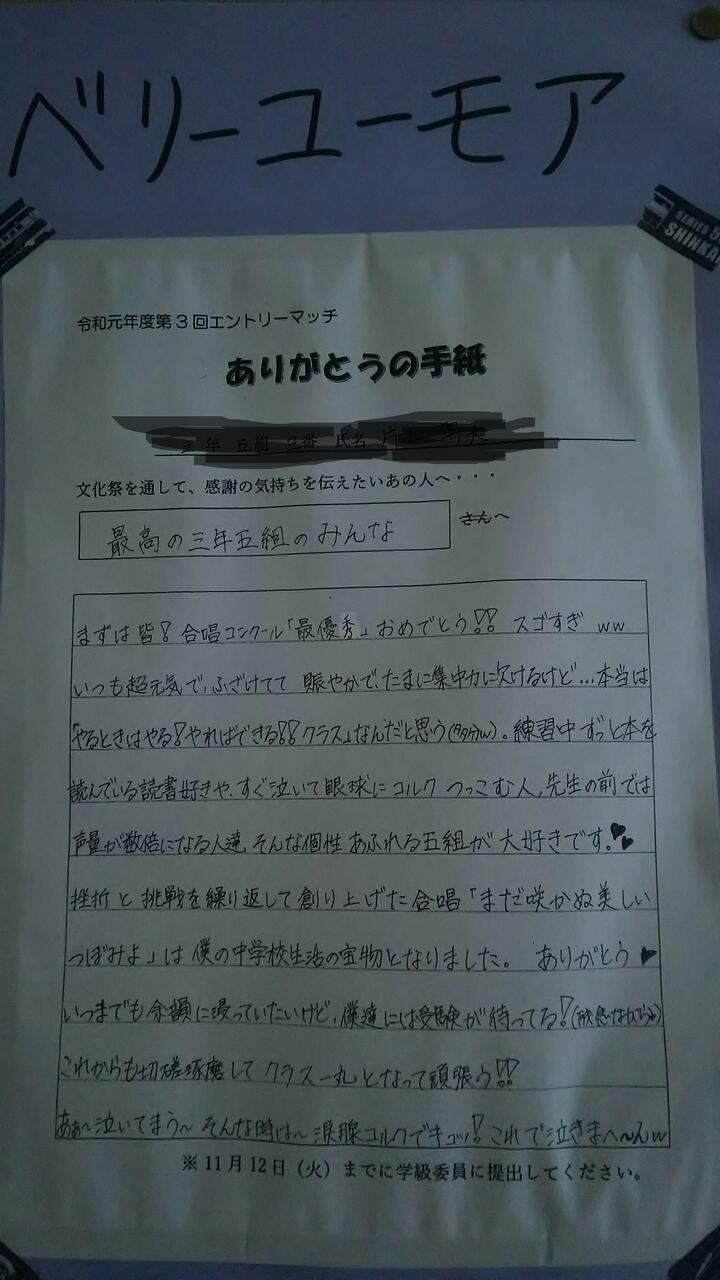 ベリーユーモア
SERIES
SHINKA
令和元年度第3回エントリーマッチ
ありがとうの手紙
三年 五組 番 氏名
文化祭を通して、感謝の気持ちを伝えたいあの人へ・・・
最高の三年五組のみんな さんへ
まずは皆!合唱コンクール「最優秀」おめでとう!! スゴすぎ ww
いつも超元気で、ふざけてて 賑やかで、たまに集中力に欠けるけど…本当は
「やるときはやる!やればできる!!クラス」なんだと思う(多分w)。練習中ずっと本を
読んでいる読書好きや、すぐ泣いて眼球にコルク つっこむ人、先生の前では
声量が数倍になる人達、そんな個性あふれる五組が大好きです。♥♥
挫折と挑戦を繰り返して創り上げた合唱「まだ咲かぬ美しい
つぼみよ」は僕の中学校生活の宝物となりました。 ありがとう♥
いつまでも余韻に浸っていたいけど、僕達には受験が待ってる!
これからも切磋琢磨してクラス一丸となって頑張う!!
あぁ〜泣いてまう〜そんな時は〜涙腺コルクでキュッ!これで泣きまへ〜んw
※11月12日(火)までに学級委員に提出してください。